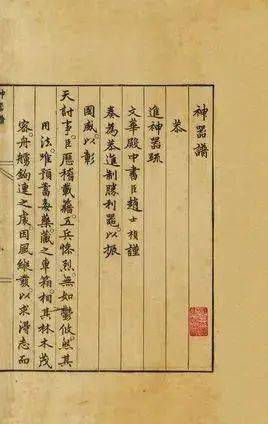 神器譜
恭
進神器疏
文華殿中書臣趙士禎謹
奏為恭進制勝利器以振
國威以彰
天討事臣歷稽載籍五兵慘烈無如鬱攸然其
用法雖預蓄委藥藏之車箱相其林木茂
密舟艫鉤連之處因風縱發以求得志而